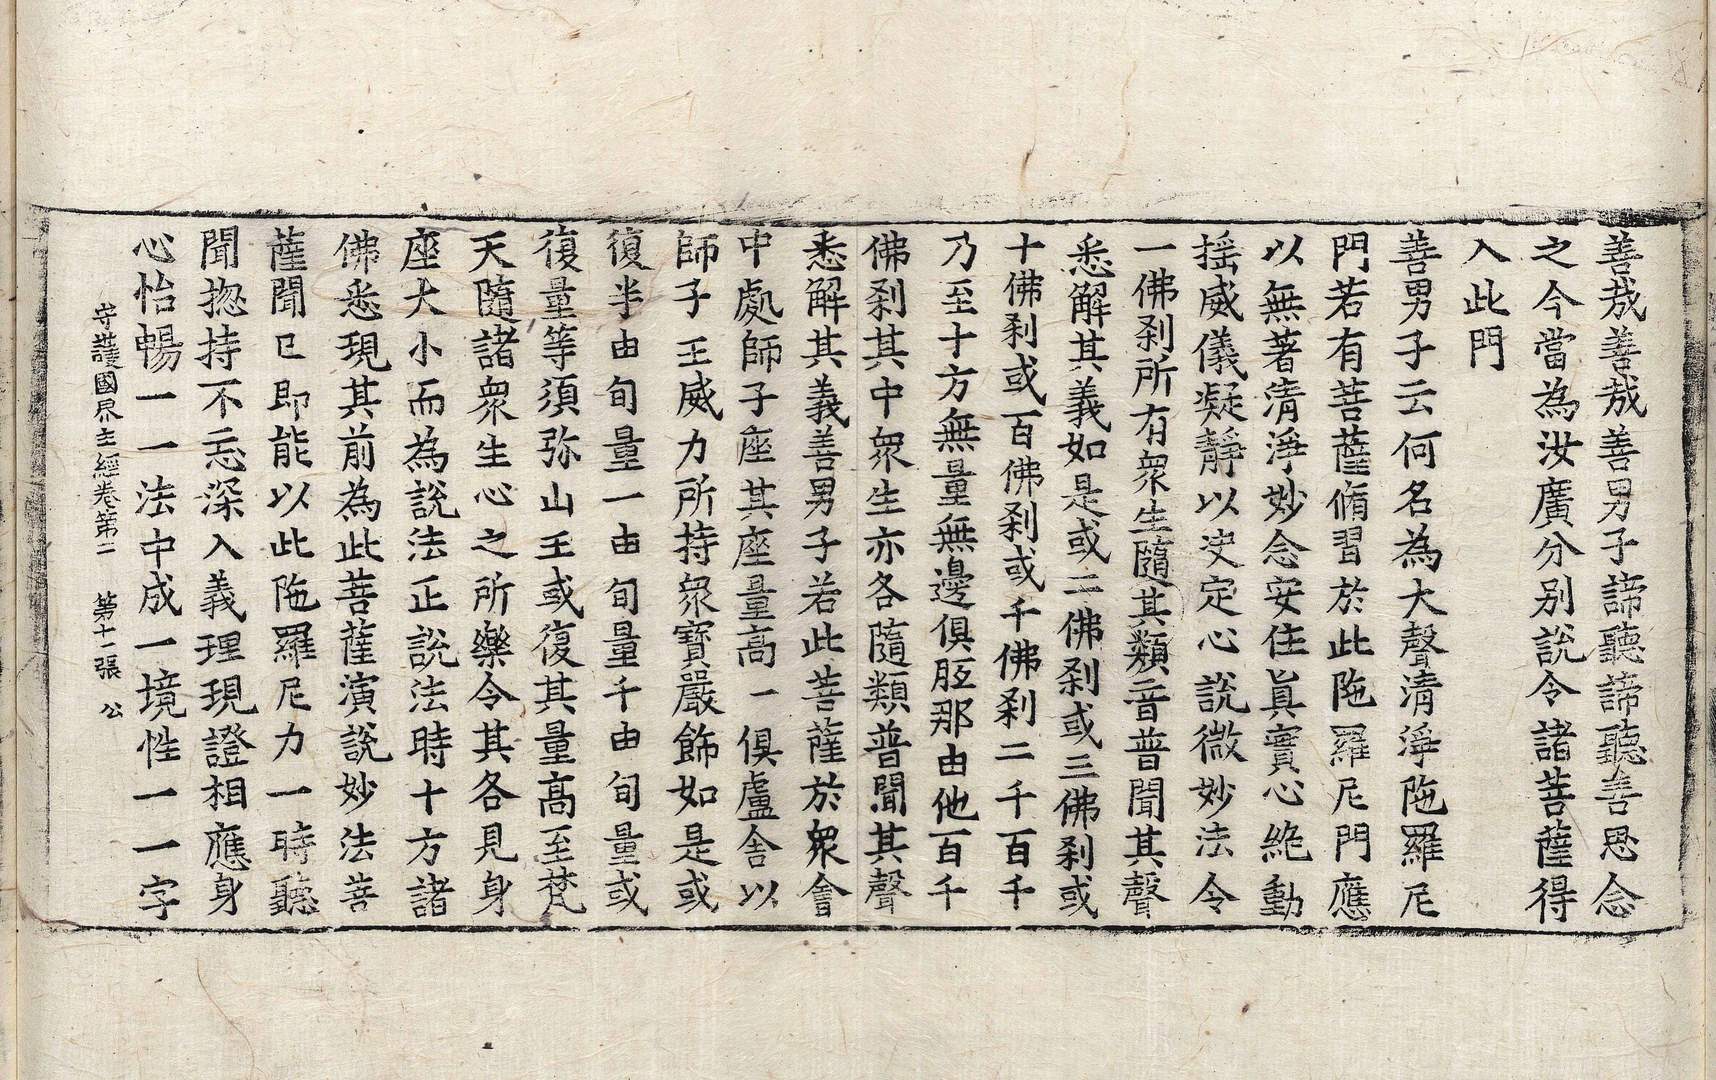 善哉善哉善男子諦聽諦聽善思念
之今當為汝廣分別說令諸菩薩得
入此門
善男子云何名為大聲清淨陁羅尼
門若有菩薩脩習於此陁羅尼門應
以無著清淨妙念安住真實心絶動
搖威儀凝靜以决定心說微妙法令
一佛刹所有衆生隨其類音普聞其聲
悉解其義如是或二佛刹或三佛刹或
十佛刹或百佛刹或千佛刹二千百千
乃至十方無量無邊俱胝那由他百千
佛刹其中衆生亦各隨類普聞其聲
悉解其義善男子若此菩薩於衆會
中處師子座其座量高一俱盧舍以
師子王威力所持衆寶嚴飾如是或
復半由旬量一由旬量千由旬量或
復量等須弥山王或復其量高至梵
天隨諸衆生心之所樂令其各見身
座大小而為說法正說法時十方諸
佛悉現其前為此菩薩演說妙法菩
薩聞已即能以此陁羅尼力一時聽
聞捴持不忘深入義理現證相應身
心怡暢一一法中成一境性一一字
守護國界主經卷第二　第十二張　公